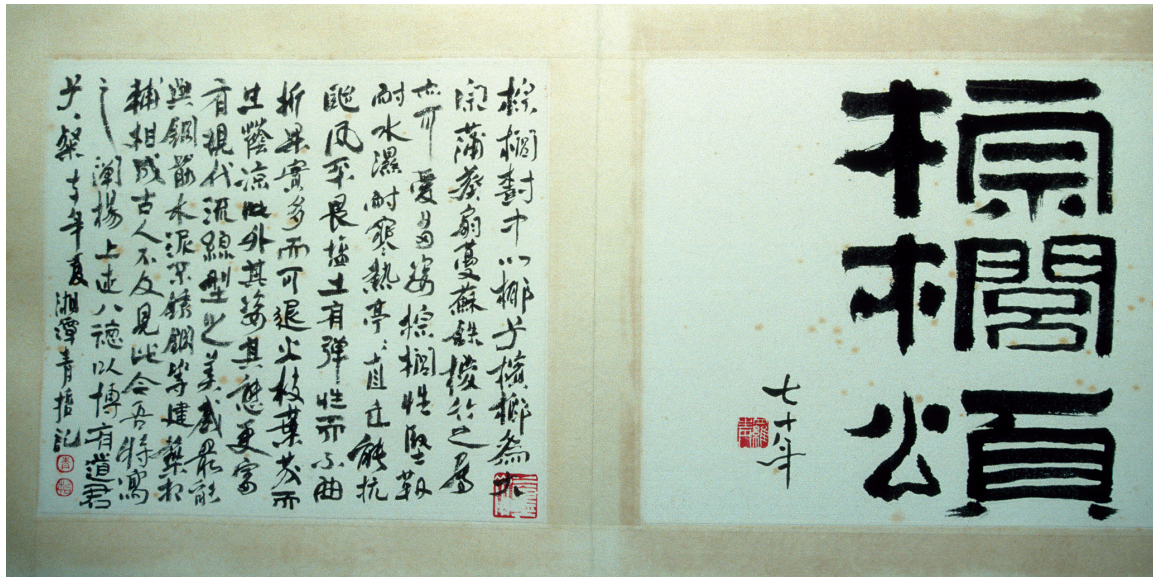 棕櫚頌
七十年
棕櫚樹中以椰子檳榔為大
宗蒲葵扇蔓蘇鐵椶竹之屬
亦可愛多姿棕櫚性堅韌
耐水濕耐寒熱亭亭直立能抗
颱風不畏鹽土有彈性而不曲
折果實多而可退火枝葉茂而
生蔭涼此外其姿其態更富
有現代流線型之美感最能
與鋼筋水泥不銹鋼等建築相
輔相成古人不及見此今吾將寫
之闡揚上述八德以博有道君
子一粲七十年夏湘潭青記